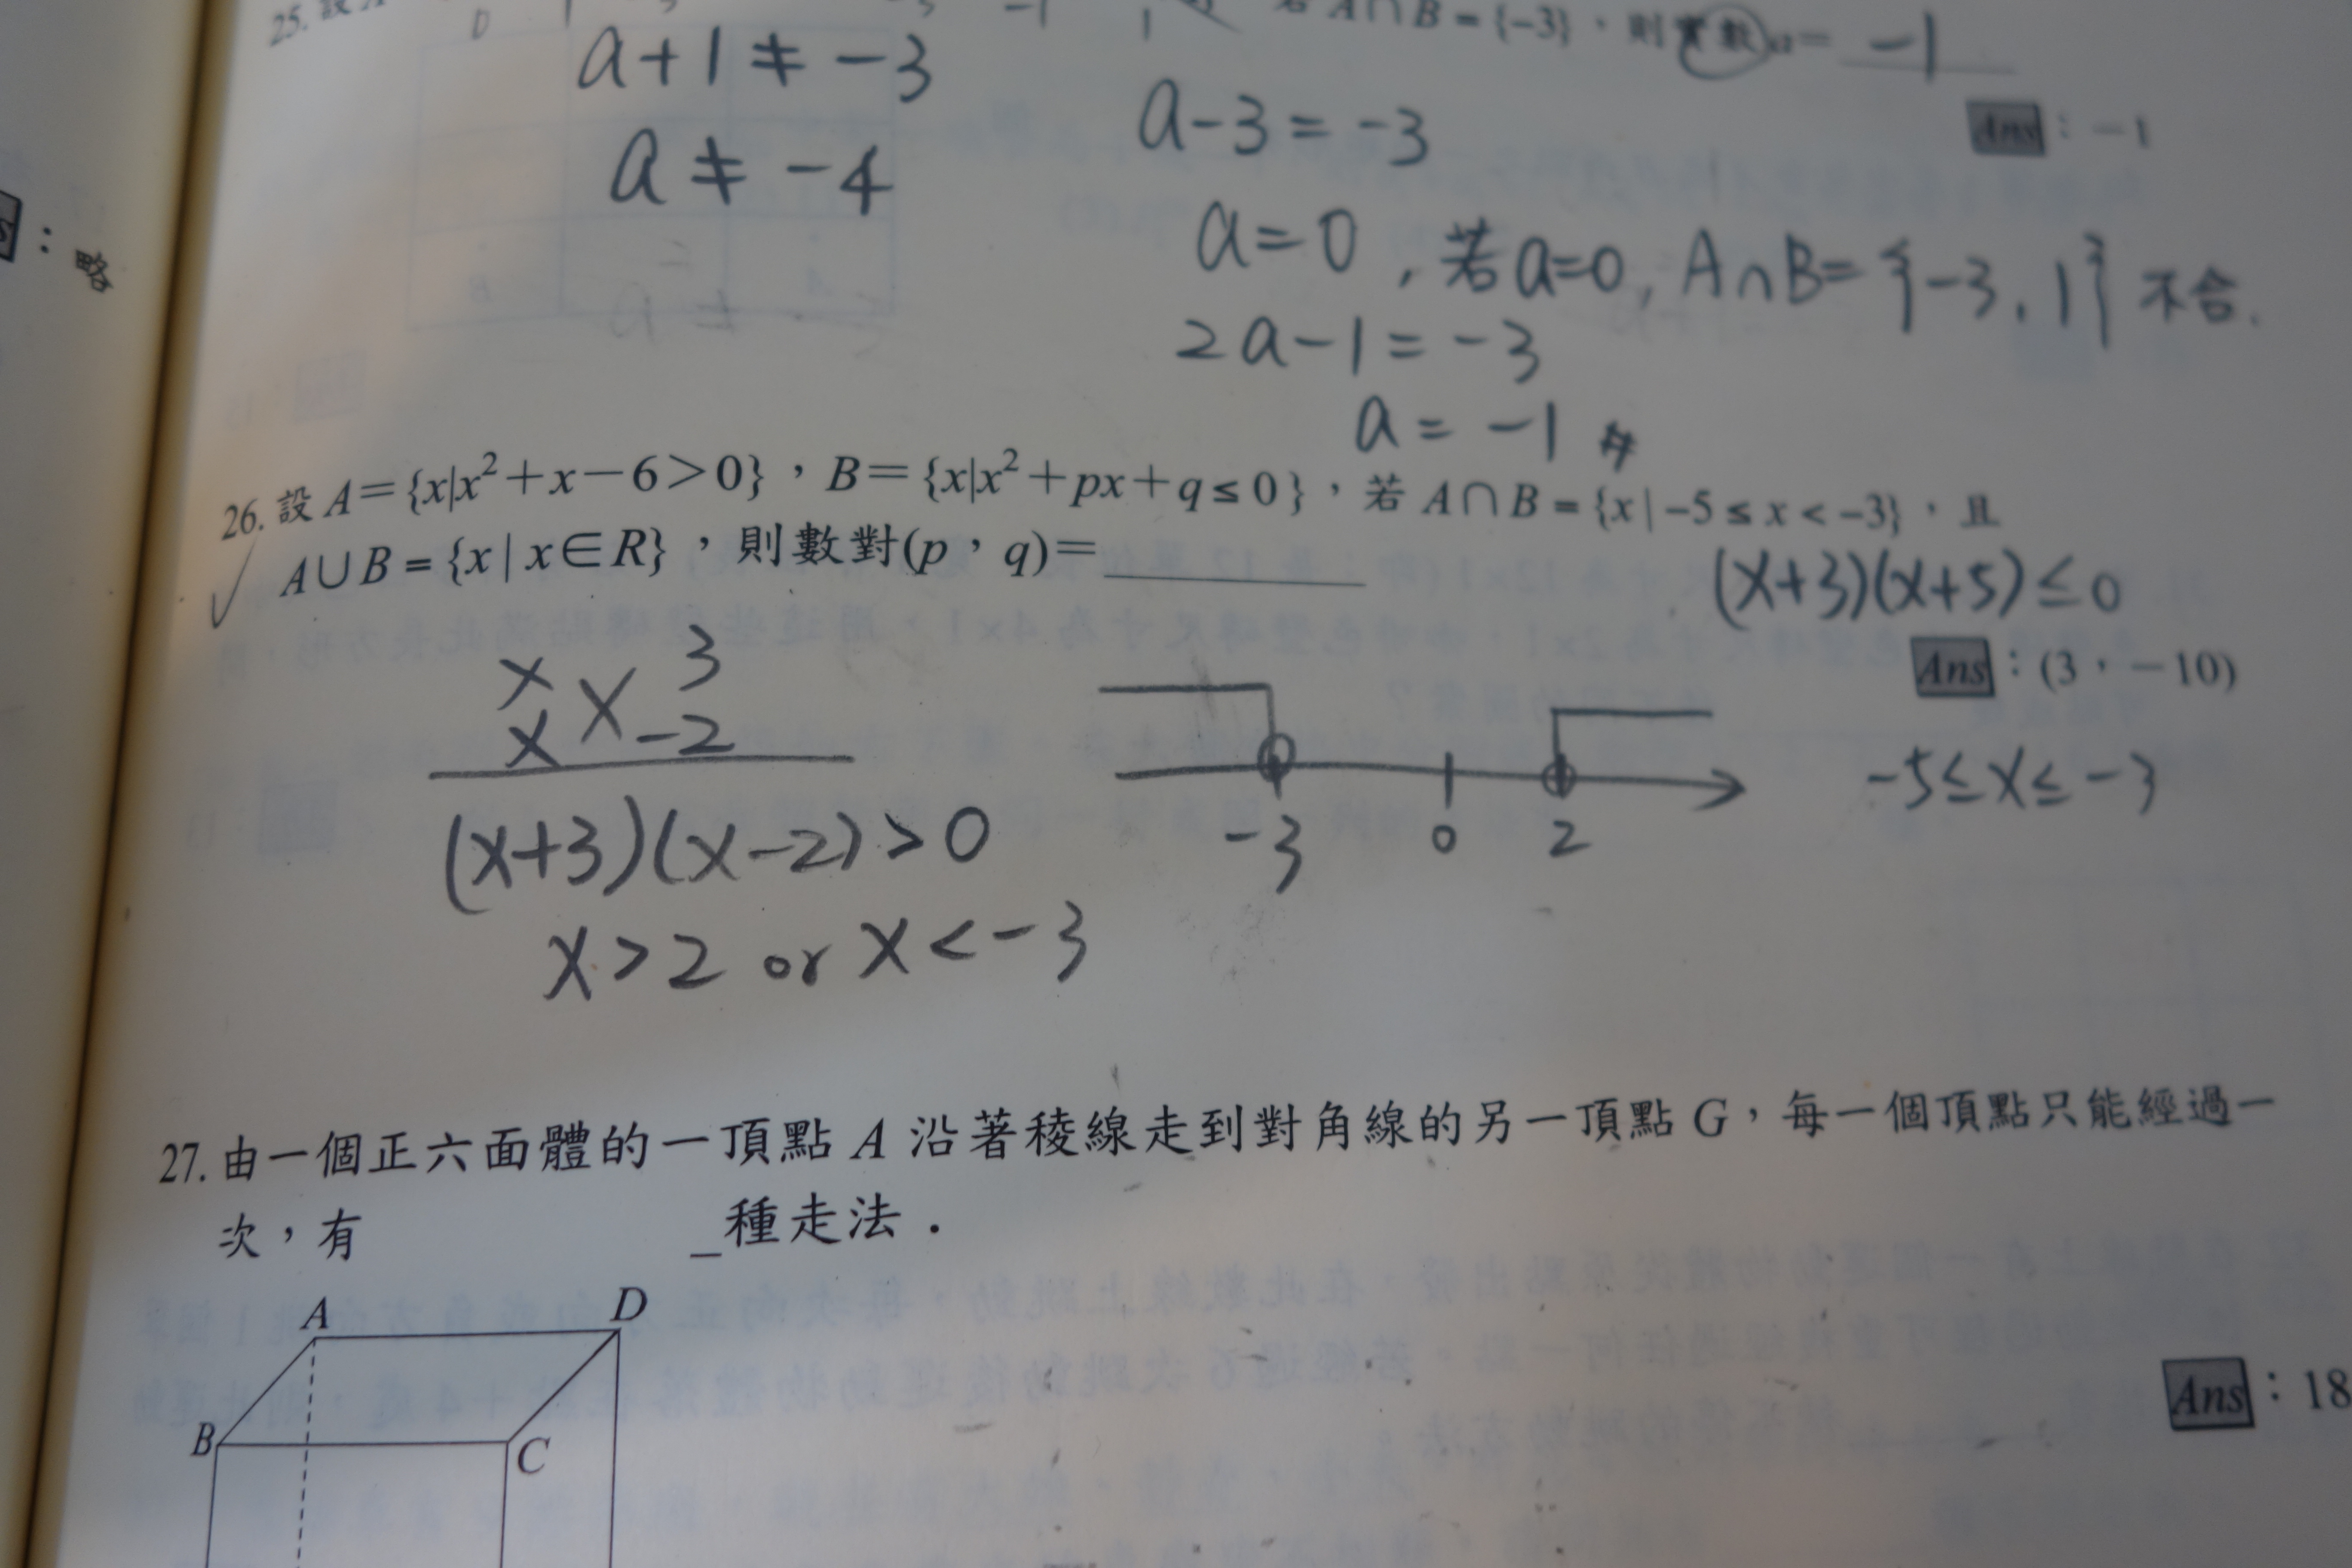 25. 設A
若 A∩B={-3}，則實數a= -1
a+1≠-3
Ans：-1
a≠-4
a-3=-3
a=0，若a=0，A∩B={-3,1}不合.
2a-1=-3
a=-1 #
：略
26. 設A={x|x²+x-6>0}，B={x|x²+px+q≤0}，若 A∩B={x|-5≤x<-3}，且
A∪B={x|x∈R}，則數對(p，q)=
(x+3)(x+5)≤0
Ans：(3，-10)
x 3
x -2
-3 0 2
-5≤x≤-3
(x+3)(x-2)>0
x>2 or x<-3
27. 由一個正六面體的一頂點 A 沿著稜線走到對角線的另一頂點 G，每一個頂點只能經過一
次，有 _種走法．
A D
B C
Ans：18